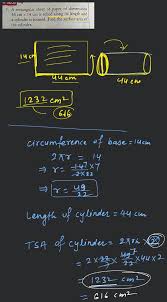 A rectangular sheet of paper of dimensions
44 cm × 14 cm is rolled along its length and
a cylinder is formed. Find the surface area of
the cylinder.
14cm
44cm
44cm
1232 cm²
616
circumference of base = 14cm
2πr = 14
⇒ r = 14 × 7
2 × 22
⇒ r = 49
22
Length of cylinder = 44 cm
TSA of cylinder = 2πrh
= 2 × 22 × 49 × 44 × 2
7 22
= 1232 cm²
= 616 cm²